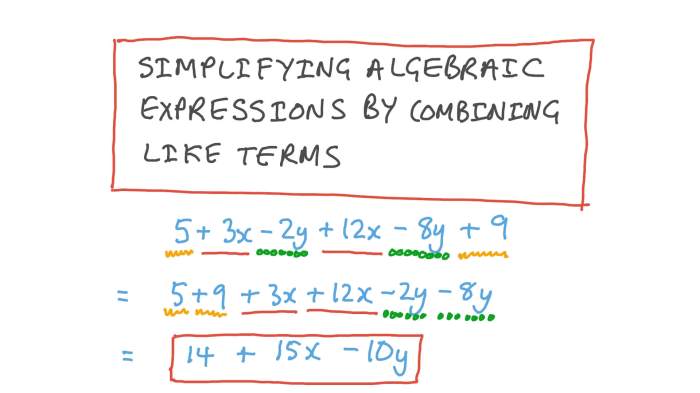 SIMPLIFYING ALGEBRAIC
EXPRESSIONS BY COMBINING
LIKE TERMS
5 + 3x - 2y + 12x - 8y + 9
= 5 + 9 + 3x + 12x - 2y - 8y
= 14 + 15x - 10y